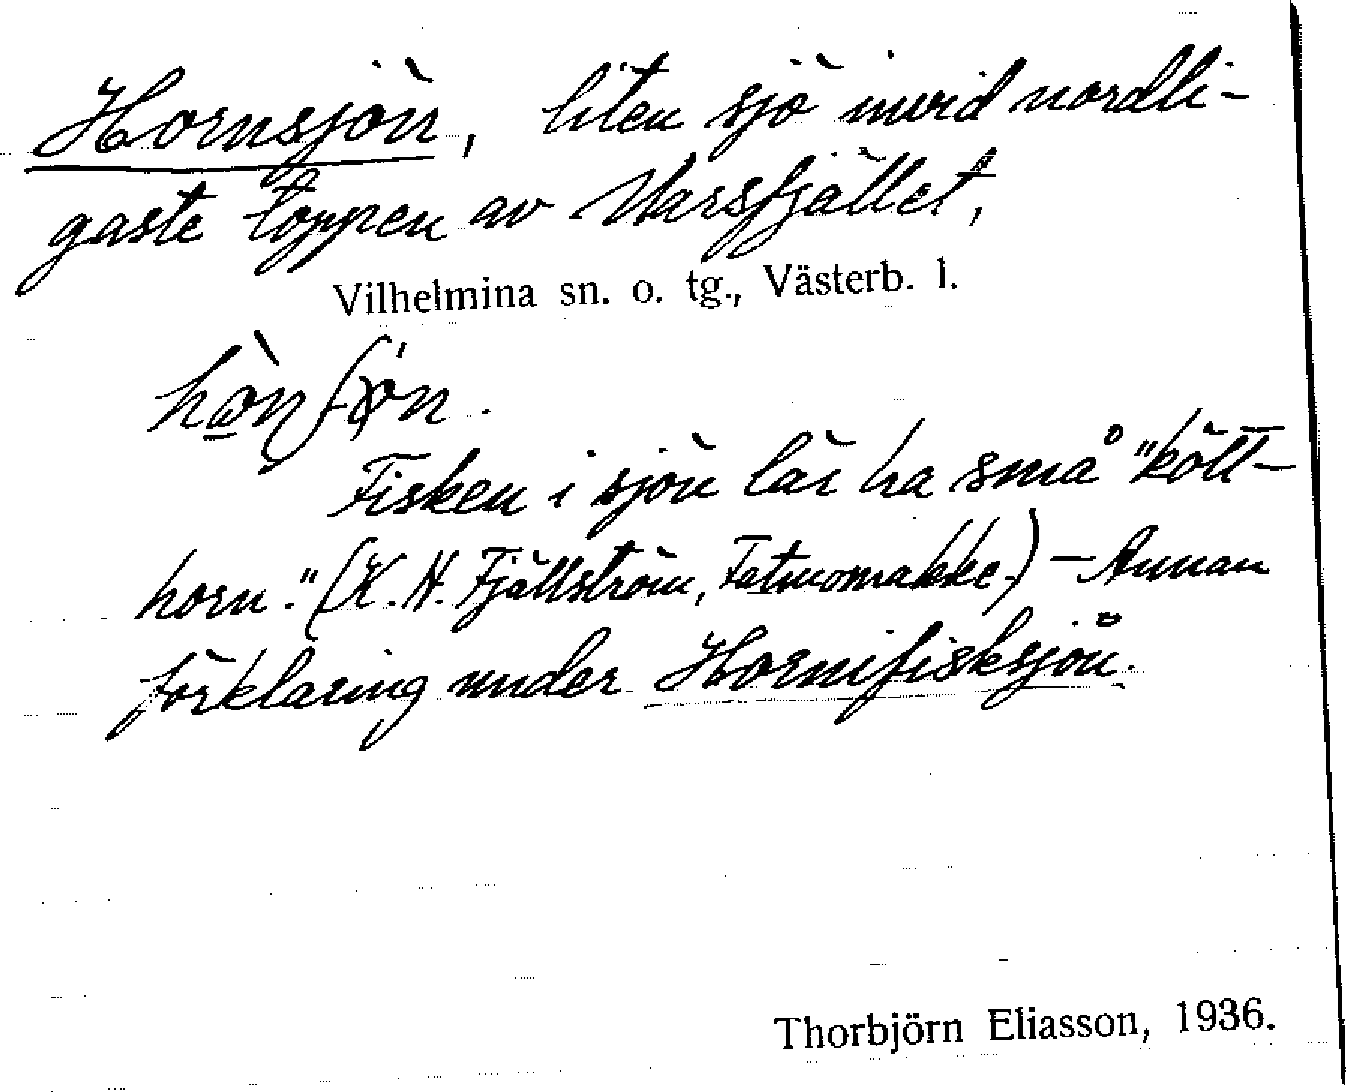 Hornsjön, liten sjö invid nordli-
gaste toppen av Marsfjället,
Vilhelmina sn. o. tg., Västerb. l.
Fisken i sjön lär ha små "kött-
horn." (K. H. Fjällström, Fatmomakke.) - Annan
förklaring under Hornifisksjön.
Thorbjörn Eliasson, 1936.